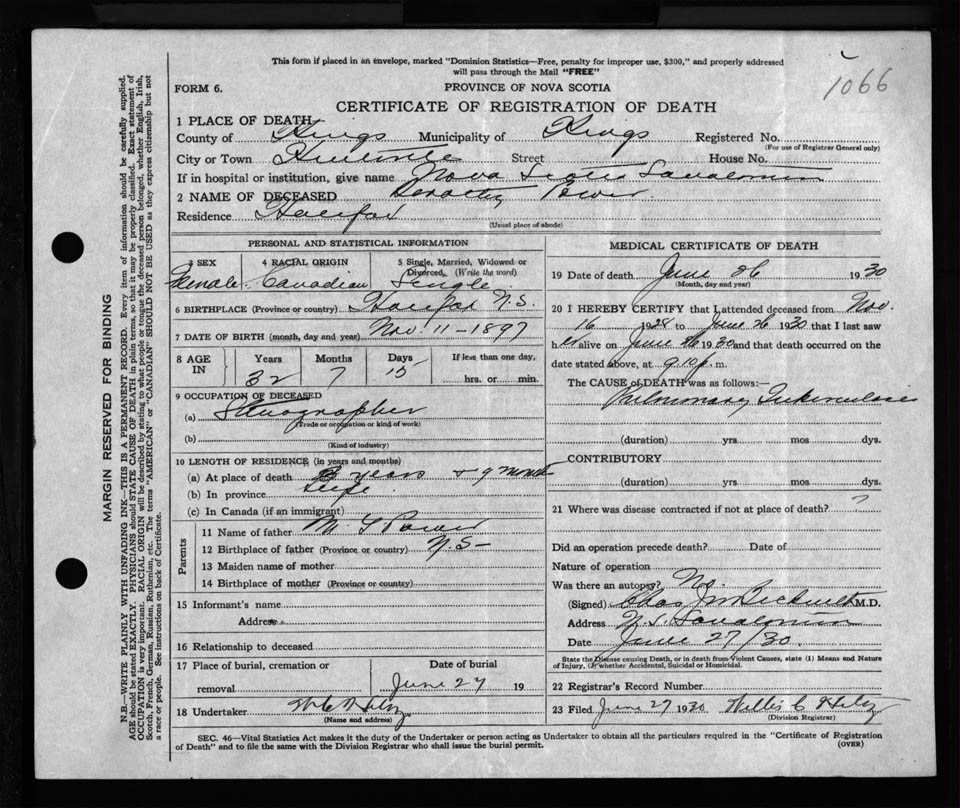 1066
This form if placed in an envelope, marked "Dominion Statistics—Free, penalty for improper use, $300," and properly addressed
will pass through the Mail "FREE"
FORM 6. PROVINCE OF NOVA SCOTIA
CERTIFICATE OF REGISTRATION OF DEATH
1 PLACE OF DEATH
County of Kings Municipality of Kings Registered No.
(For use of Registrar General only)
City or Town Kentville Street House No.
If in hospital or institution, give name Nova Scotia Sanatorium
2 NAME OF DECEASED Dorothy Power
Residence Halifax
(Usual place of abode)
PERSONAL AND STATISTICAL INFORMATION
3 SEX 4 RACIAL ORIGIN 5 Single, Married, Widowed or
Divorced. (Write the word)
Female Canadian Single
6 BIRTHPLACE (Province or country) Halifax N.S.
7 DATE OF BIRTH (month, day and year) Nov. 11-1897
8 AGE IN Years Months Days If less than one day,
32 7 15 hrs. or min.
9 OCCUPATION OF DECEASED
(a) Stenographer
(Trade or occupation or kind of work)
(b)
(Kind of industry)
10 LENGTH OF RESIDENCE (in years and months)
(a) At place of death years + 9 months
(b) In province Life
(c) In Canada (if an immigrant)
Parents
11 Name of father M Power
12 Birthplace of father (Province or country) N.S-
13 Maiden name of mother
14 Birthplace of mother (Province or country)
15 Informant's name
Address
16 Relationship to deceased
17 Place of burial, cremation or Date of burial
removal June 27 19
18 Undertaker W C Hiltz
(Name and address)
MEDICAL CERTIFICATE OF DEATH
19 Date of death June 26 1930
(Month, day and year)
20 I HEREBY CERTIFY that I attended deceased from Nov.
16 1928 to June 26 1930 that I last saw
her alive on June 26 1930 and that death occurred on the
date stated above, at 9.10 p. m.
The CAUSE OF DEATH was as follows:—
Pulmonary Tuberculosis
(duration) yrs. mos. dys.
CONTRIBUTORY
(duration) yrs. mos. dys.
21 Where was disease contracted if not at place of death? ?
Did an operation precede death? Date of
Nature of operation
Was there an autopsy? No.
(Signed) Chas J Beckwith M.D.
Address N.S. Sanatorium
Date June 27/30
State the Disease causing Death, or in death from Violent Causes, state (1) Means and Nature
of Injury, (2) whether Accidental, Suicidal or Homicidal.
22 Registrar's Record Number
23 Filed June 27 1930 Willis C Hiltz
(Division Registrar)
SEC. 46—Vital Statistics Act makes it the duty of the Undertaker or person acting as Undertaker to obtain all the particulars required in the "Certificate of Registration
of Death" and to file the same with the Division Registrar who shall issue the burial permit. (OVER)
MARGIN RESERVED FOR BINDING
N.B.—WRITE PLAINLY WITH UNFADING INK—THIS IS A PERMANENT RECORD. Every item of information should be carefully supplied.
AGE should be stated EXACTLY. PHYSICIANS should STATE CAUSE OF DEATH in plain terms, so that it may be properly classified. Exact statement of
OCCUPATION is very important. RACIAL ORIGIN will be described by stating to what people or tongue the deceased person belonged, whether English, Irish,
Scotch, French, German, Russian, Ruthenian, etc. The terms "AMERICAN" or "CANADIAN" SHOULD NOT BE USED as they express citizenship but not
a race or people. See instructions on back of Certificate.